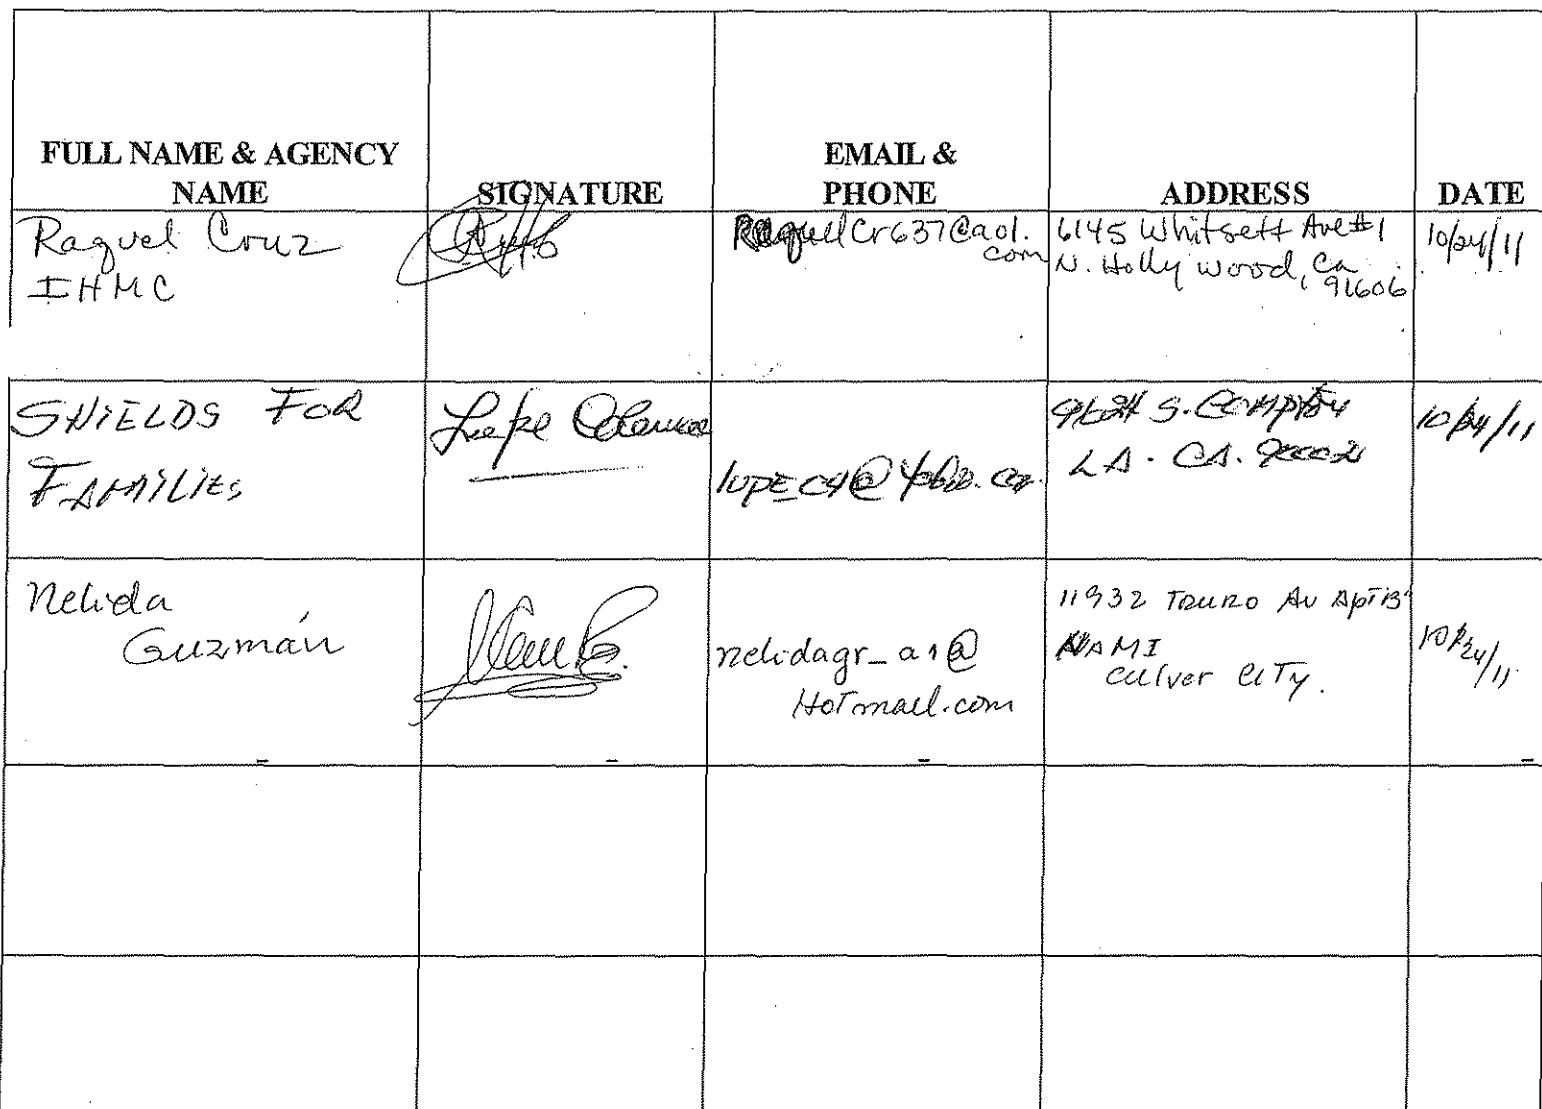 FULL NAME & AGENCY
NAME
SIGNATURE
EMAIL &
PHONE
ADDRESS
DATE
Raquel Cruz
IHMC
RaquelCr637@aol.
com
6145 Whitsett Ave #1
N. Hollywood, Ca
91606
10/24/11
SHIELDS FOR
FAMILIES
Lupe
S. Compton
LA. CA. 90002
10/24/11
Nelida
Guzmán
nelidagr_a1@
Hotmail.com
11932 TRURO AV APT B
NAMI
Culver City.
10/24/11